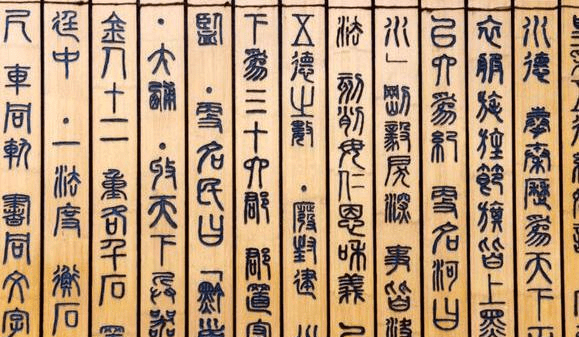 水德 為天下
衣服旄旌節旗皆上黑
以六為紀 更名河曰
水」剛毅戾深 事皆決
法 刻削毋仁恩和義
五德之數 ・廢封建
下為三十六郡 郡置守
監 ・更名民曰「黔首
・大酺 ・收天下兵器
金人十二 重各千石
廷中 ・一法度 衡石
尺 車同軌 書同文字